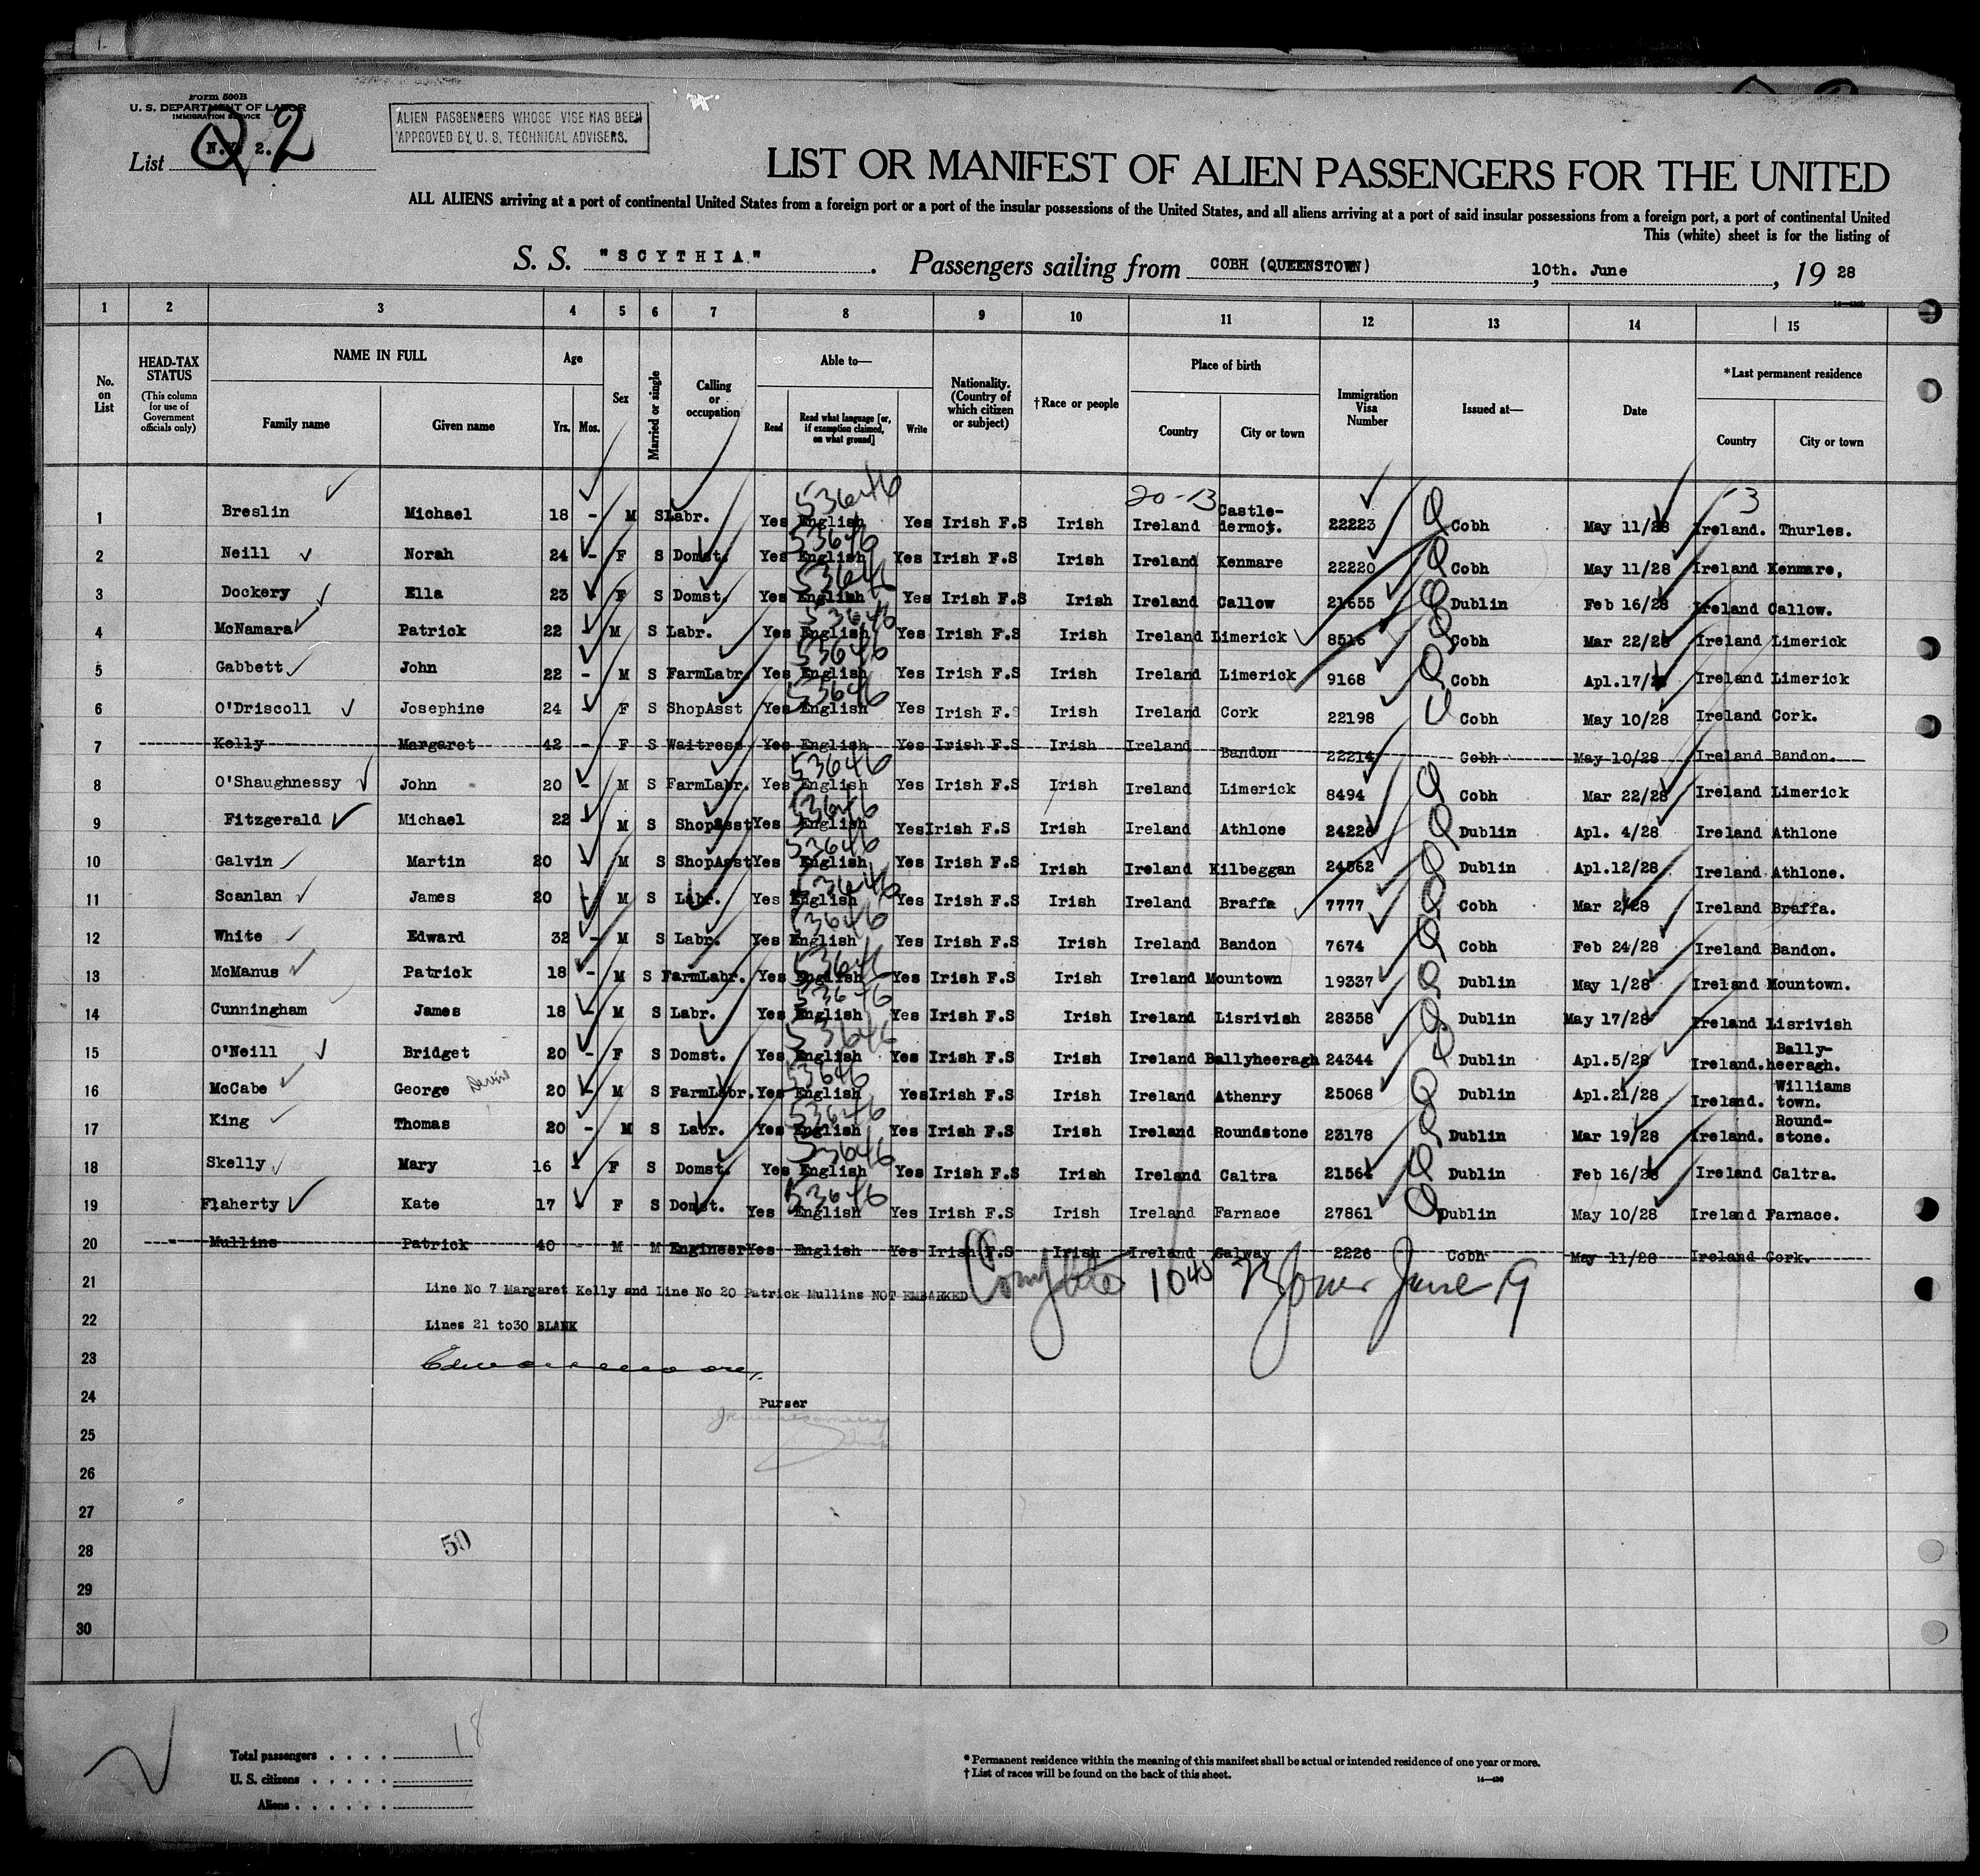 Form 500B
U. S. DEPARTMENT OF LABOR
IMMIGRATION SERVICE
ALIEN PASSENGERS WHOSE VISE HAS BEEN
APPROVED BY U. S. TECHNICAL ADVISERS.
List N.Y. 2. 2
LIST OR MANIFEST OF ALIEN PASSENGERS FOR THE UNITED
ALL ALIENS arriving at a port of continental United States from a foreign port or a port of the insular possessions of the United States, and all aliens arriving at a port of said insular possessions from a foreign port, a port of continental United
This (white) sheet is for the listing of
S. S. "SCYTHIA" . Passengers sailing from COBH (QUEENSTOWN) , 10th. June , 19 28
1 2 3 4 5 6 7 8 9 10 11 12 13 14 15
No. on List
HEAD-TAX STATUS (This column for use of Government officials only)
NAME IN FULL Family name Given name
Age Yrs. Mos.
Sex
Married or single
Calling or occupation
Able to— Read Read what language [or, if exemption claimed, on what ground] Write
Nationality. (Country of which citizen or subject)
†Race or people
Place of birth Country City or town
Immigration Visa Number
Issued at—
Date
*Last permanent residence Country City or town
20-13 3
1 Breslin Michael 18 - M S Labr. Yes English 53646 Yes Irish F.S Irish Ireland Castle-dermot. 22223 Cobh May 11/28 Ireland. Thurles.
2 Neill Norah 24 - F S Domst. Yes English 53646 Yes Irish F.S Irish Ireland Kenmare 22220 Cobh May 11/28 Ireland Kenmare,
3 Dockery Ella 23 F S Domst. Yes English 53646 Yes Irish F.S Irish Ireland Callow 21655 Dublin Feb 16/28 Ireland Callow.
4 McNamara Patrick 22 M S Labr. Yes English 53646 Yes Irish F.S Irish Ireland Limerick 8516 Cobh Mar 22/28 Ireland Limerick
5 Gabbett John 22 - M S FarmLabr. Yes English 53646 Yes Irish F.S Irish Ireland Limerick 9168 Cobh Apl.17/28 Ireland Limerick
6 O'Driscoll Josephine 24 F S ShopAsst Yes English 53646 Yes Irish F.S Irish Ireland Cork 22198 Cobh May 10/28 Ireland Cork.
7 Kelly Margaret 42 - F S Waitress Yes English Yes Irish F.S Irish Ireland Bandon 22214 Cobh May 10/28 Ireland Bandon.
8 O'Shaughnessy John 20 - M S FarmLabr. Yes English 53646 Yes Irish F.S Irish Ireland Limerick 8494 Cobh Mar 22/28 Ireland Limerick
9 Fitzgerald Michael 22 M S ShopAsst Yes English 53646 Yes Irish F.S Irish Ireland Athlone 24226 Dublin Apl. 4/28 Ireland Athlone
10 Galvin Martin 20 - M S ShopAsst Yes English 53646 Yes Irish F.S Irish Ireland Kilbeggan 24562 Dublin Apl.12/28 Ireland Athlone.
11 Scanlan James 20 - M S Labr. Yes English 53646 Yes Irish F.S Irish Ireland Braffa 7777 Cobh Mar 2/28 Ireland Braffa.
12 White Edward 32 - M S Labr. Yes English 53646 Yes Irish F.S Irish Ireland Bandon 7674 Cobh Feb 24/28 Ireland Bandon.
13 McManus Patrick 18 - M S FarmLabr. Yes English 53646 Yes Irish F.S Irish Ireland Mountown 19337 Dublin May 1/28 Ireland Mountown.
14 Cunningham James 18 - M S Labr. Yes English 53646 Yes Irish F.S Irish Ireland Lisrivish 28358 Dublin May 17/28 Ireland Lisrivish
15 O'Neill Bridget 20 - F S Domst. Yes English 53646 Yes Irish F.S Irish Ireland Ballyheeragh 24344 Dublin Apl.5/28 Ireland. Bally-heeragh.
16 McCabe George 20 - M S FarmLabr. Yes English 53646 Yes Irish F.S Irish Ireland Athenry 25068 Dublin Apl.21/28 Ireland. Williams town.
17 King Thomas 20 - M S Labr. Yes English 53646 Yes Irish F.S Irish Ireland Roundstone 23178 Dublin Mar 19/28 Ireland. Round-stone.
18 Skelly Mary 16 - F S Domst. Yes English 53646 Yes Irish F.S Irish Ireland Caltra 21564 Dublin Feb 16/28 Ireland Caltra.
19 Flaherty Kate 17 - F S Domst. Yes English 53646 Yes Irish F.S Irish Ireland Farnace 27861 Dublin May 10/28 Ireland Farnace.
20 Mullins Patrick 40 - M M Engineer Yes English Yes Irish F.S Irish Ireland Galway 2226 Cobh May 11/28 Ireland Cork.
21 Line No 7 Margaret Kelly and Line No 20 Patrick Mullins NOT EMBARKED Complete 10 45 June 19
22 Lines 21 to30 BLANK
23
24 Purser
25
26
27
28 50
29
30
Total passengers . . . . 18
U. S. citizens . . . . .
Aliens . . . . . .
* Permanent residence within the meaning of this manifest shall be actual or intended residence of one year or more.
† List of races will be found on the back of this sheet.